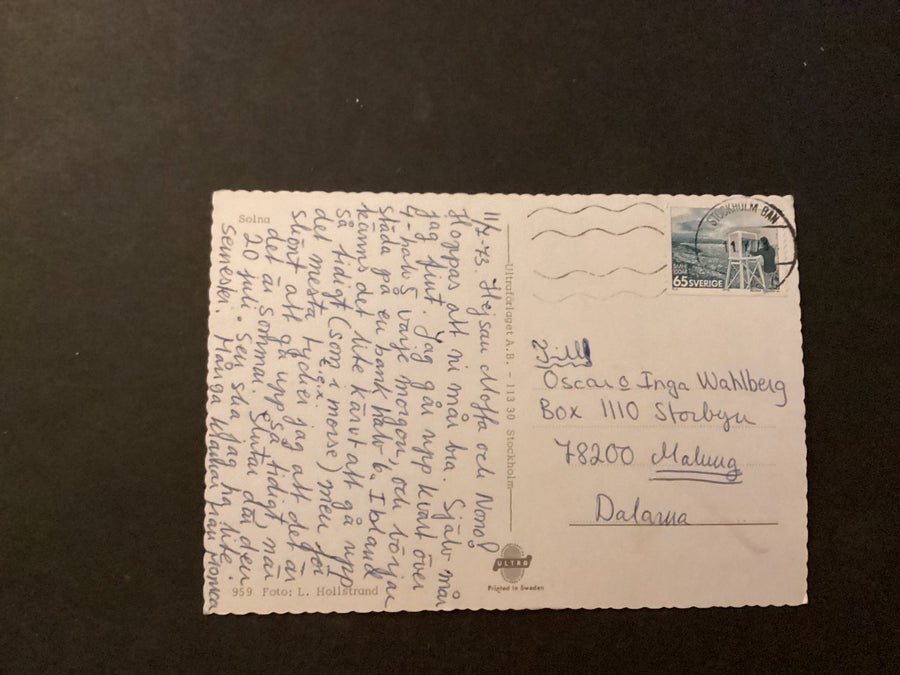 Solna
11/7-73. Hejsan Moffa och Nono!
Hoppas att ni mår bra. Själv mår
jag fint. Jag går upp kvart över
4-halv 5 varje morgon, och börjar
städa på en bank halv 6. Ibland
känns det lite kärvt att gå upp
så tidigt (som t.ex. i morse) men för
det mesta tycker jag att det är
skönt att gå upp så tidigt när
det är sommar. Slutar där den
20 juli. Sen ska jag ha lite
semester. Många kramar från Monica
959 Foto: L. Hollstrand
Ultraförlaget A.B. - 113 30 Stockholm
ULTRA
Printed in Sweden
STOCKHOLM BAN
65 SVERIGE
Till
Oscar o Inga Wahlberg
Box 1110 Storbyn
78200 Malung
Dalarna